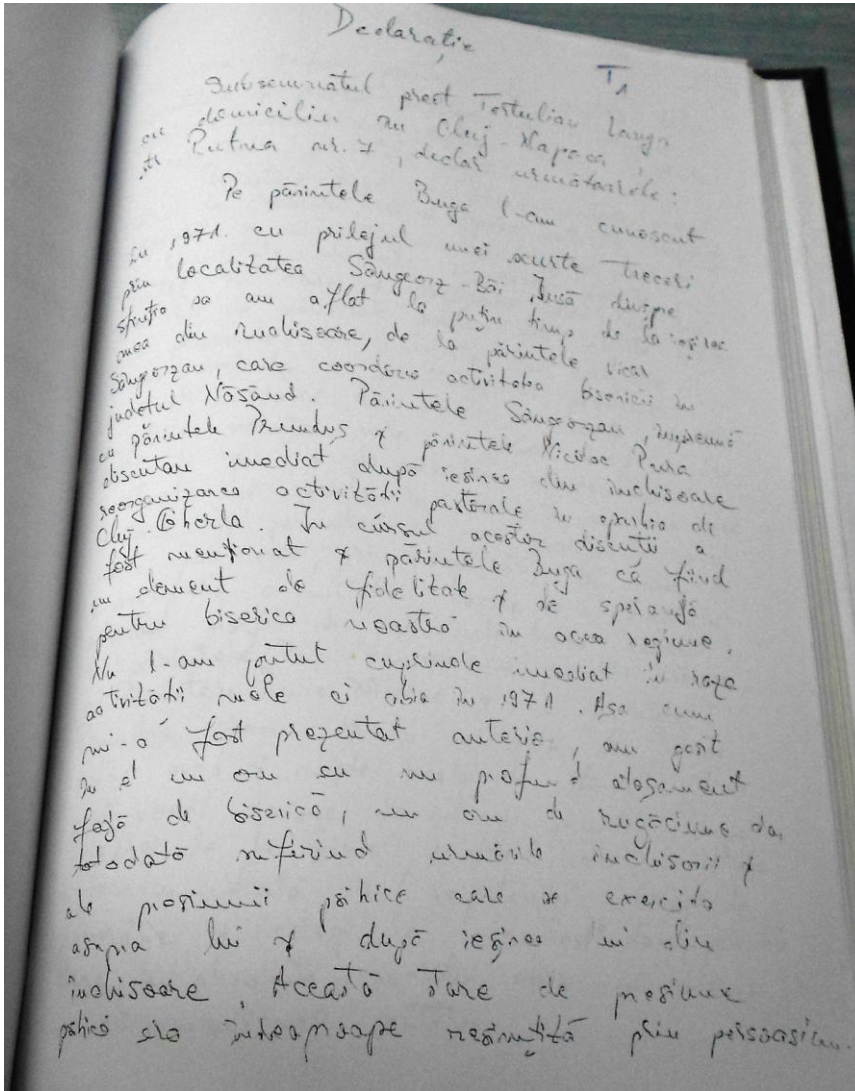 Declarație
T1
Subsemnatul preot Tertulian Langa
cu domiciliu în Cluj-Napoca,
str Putna nr. 7, declar următoarele:
Pe părintele Buga l-am cunoscut
în 1971. cu prilejul unei scurte treceri
prin localitatea Sângeorz-Băi, Însă despre
sfinția sa am aflat la puțin timp de la ieșirea
mea din închisoare, de la părintele vicar
Sângeorzan, care coordona activitatea bisericii în
județul Năsăud. Părintele Sângeorzan, împreună
cu părintele Prunduș & părintele Nicolae Pura
discutau imediat după ieșirea din închisoare
reorganizarea activității pastorale în eparhia de
Cluj-Gherla. În cursul acestor discuții a
fost menționat & părintele Buga ca fiind
un element de fidelitate & de speranță
pentru biserica noastră în acea regiune.
Nu l-am putut cuprinde imediat în raza
activității mele ci abia în 1971. Așa cum
mi-a fost prezentat anterior, am găsit
în el un om cu un profund atașament
față de biserică, un om de rugăciune dar
totodată suferind urmările închisorii &
ale presiunii psihice care se exercita
asupra lui & după ieșirea lui din
închisoare. Această stare de presiune
psihică era întreaproape resimțită prin